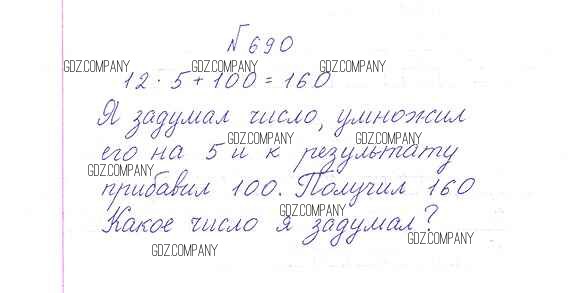 №690
GDZ.COMPANY GDZ.COMPANY GDZ.COMPANY
12 · 5 + 100 = 160
Я задумал число, умножил
GDZ.COMPANY GDZ.COMPANY
его на 5 и к результату
GDZ.COMPANY
прибавил 100. Получил 160
GDZ.COMPANY
Какое число я задумал?
GDZ.COMPANY
GDZ.COMPANY